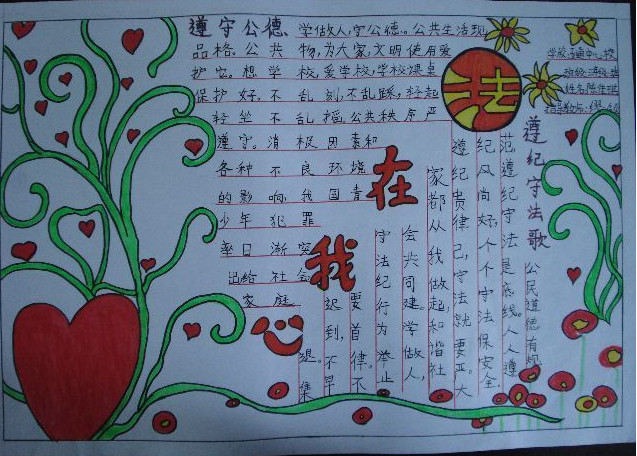 遵守公德、学做人,守公德。公共生活现
品格。公共物,为大家,文明使用爱
护它。想学校,爱学校,学校课桌
保护好。不乱刻,不乱踩,轻起
轻坐不乱搞,公共秩序严
遵守。消极因素和
各种不良环境
的影响,我国青
少年犯罪
率日渐突
出给社会
家庭
法
在
我
心
学校:中心校
班级:
姓名:陈佳
指导教师:
遵纪守法歌
公民道德有规
范遵纪守法是底线。人人遵
纪风尚好,个个守法保安全.
遵纪贵律己,守法就要严。大
家都从我做起,和谐社
会共同建。学做人,
守法纪行为举止
要首律。不
迟到,不早
退。集